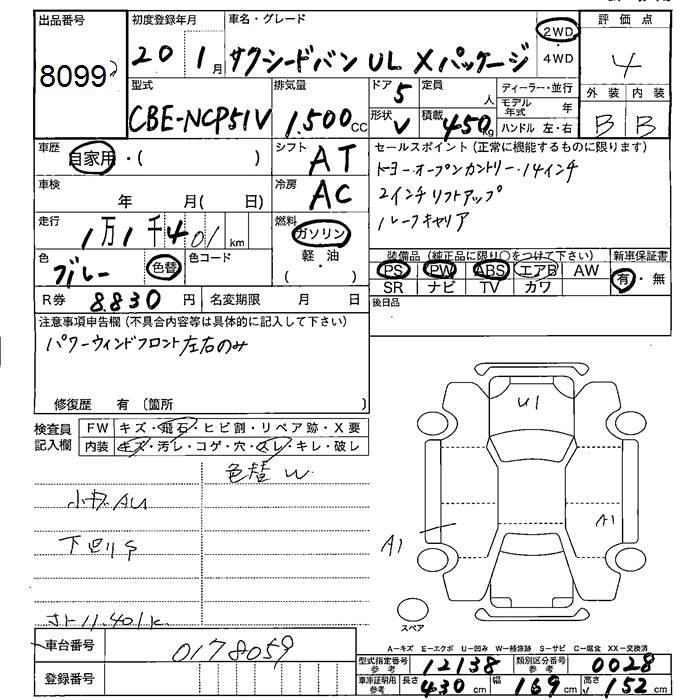 出品番号
8099
初度登録年月
20 1月
車名・グレード
サクシードバン UL Xパッケージ
2WD
4WD
評価点
4
外装 内装
B B
型式
CBE-NCP51V
排気量
1,500cc
ドア 5
定員 人
形状 V
積載 450kg
ディーラー・並行
モデル年式 年
ハンドル 左・右
車歴 自家用・( )
シフト AT
車検 年 月( 日)
冷房 AC
走行 1万1千401km
燃料 ガソリン
軽・油
( )
色
グレー
色替
色コード
R券 8.830円
名変期限 月 日
セールスポイント (正常に機能するものに限ります)
トヨーオープンカントリー・14インチ
2インチリフトアップ
ルーフキャリア
装備品 (純正品に限り○をつけて下さい)
PS PW ABS エアB AW
SR ナビ TV カワ
新車保証書
有・無
後日品
注意事項申告欄 (不具合内容等は具体的に記入して下さい)
パワーウィンドフロント左右のみ
修復歴 有 〔箇所 〕
検査員記入欄
FW キズ・飛石・ヒビ割・リペア跡・X要
内装 キズ・汚レ・コゲ・穴・スレ・キレ・破レ
色替 W
小キズAU
下回りS
メーター11.401k
U1
A1
A1
スペア
A-キズ E-エクボ U-凹み W-補修跡 S-サビ C-腐食 XX-交換済
車台番号 0178059
登録番号
型式指定番号 参考 12138
類別区分番号 参考 0028
車庫証明用 参考 長さ 430cm 幅 169cm 高さ 152cm